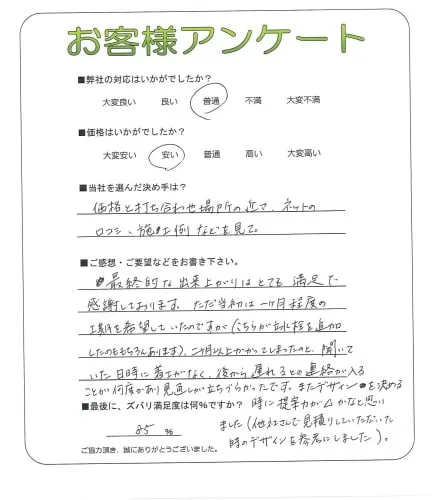 お客様アンケート
■弊社の対応はいかがでしたか？
大変良い 良い 普通 不満 大変不満
■価格はいかがでしたか？
大変安い 安い 普通 高い 大変高い
■当社を選んだ決め手は？
価格と打ち合わせ場所の近さ、ネットの
口コミ、施工例などを見て。
■ご感想・ご要望などをお書き下さい。
最終的な出来上がりはとても満足で
感謝しております。ただ当初は一ヶ月程度の
工期を希望していたのですが（こちらが立水栓を追加
したのももちろんあります）、二ヶ月以上かかってしまったのと、聞いて
いた日時に着工がなく、後から遅れるとの連絡が入る
ことが何度かあり見通しが立ちづらかったです。またデザインを決める
■最後に、ズバリ満足度は何％ですか？ 時に提案力が△かなと思い
85 % ました（他社さんで見積りしていただいた
ご協力頂き、誠にありがとうございました。 時のデザインを参考にしました）。